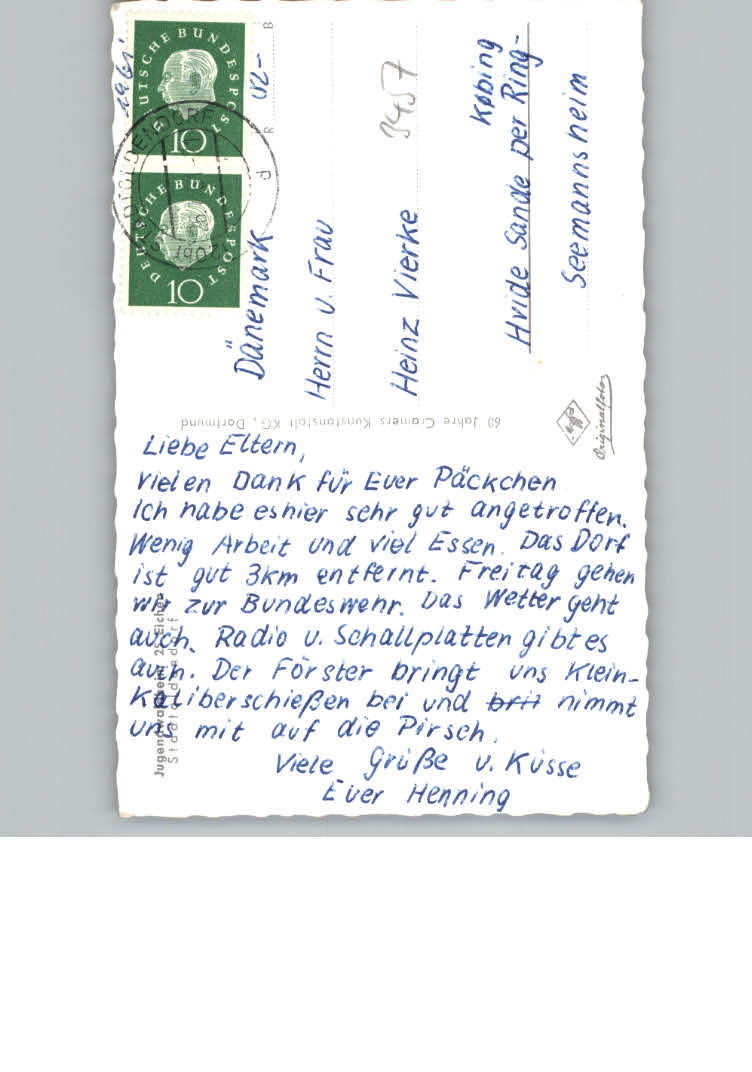 Liebe Eltern,
vielen Dank für Euer Päckchen
Ich habe es hier sehr gut angetroffen.
Wenig Arbeit und viel Essen. Das Dorf
ist gut 3km entfernt. Freitag gehen
wir zur Bundeswehr. Das Wetter geht
auch. Radio u. Schallplatten gibt es
auch. Der Förster bringt uns Klein-
Kaliberschießen bei und brit nimmt
uns mit auf die Pirsch.
Viele Grüße u. Küsse
Euer Henning
Jugendwaldheim 25 Eichen
Stadtoldendorf
60 Jahre Cramers Kunstanstalt KG, Dortmund
Agfa
Originalfoto
Dänemark
Herrn u. Frau
Heinz Vierke
Hvide Sande per Ring-
Købing
Seemannsheim
3457
1961
DEUTSCHE BUNDESPOST
10
DEUTSCHE BUNDESPOST
10